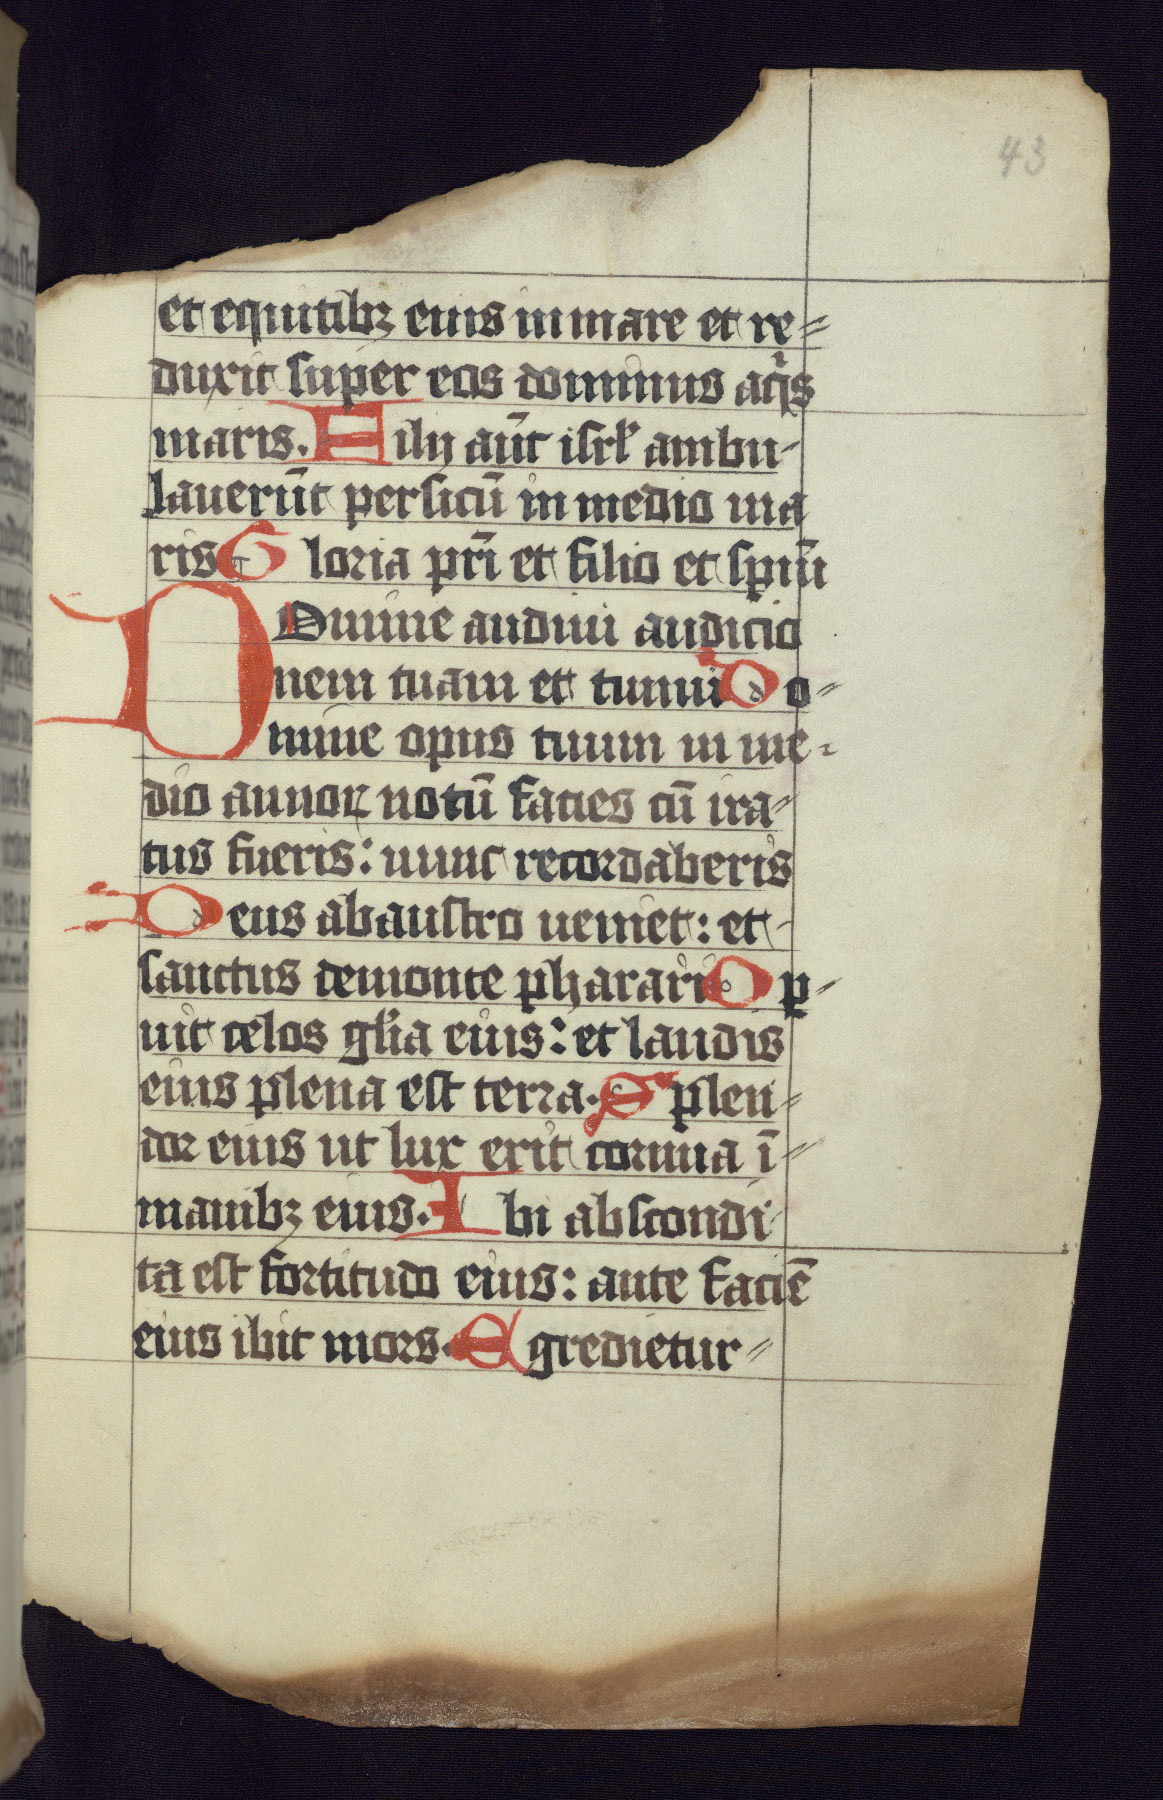 43
et equitibꝫ eius in mare et re=
duxit super eos dominus aq̄s
maris. Filij aūt isrl̄ ambu-
lauerūt per sicū in medio ma
ris Gloria pr̄i et filio et spiūi
DOmine audiui auditio
nem tuam et timui Do-
mine opus tuum in me-
dio annoꝝ notū facies cū ira-
tus fueris: nunc recordaberis
Deus ab austro ueniet: et-
sanctus de monte pharan Op-
uit celos gl̄ia eius: et laudis
eius plena est terra. Splen=
dor eius ut lux erit cornua ī=
manibꝫ eius. Ibi abscondi-
ta est fortitudo eius: ante faciē
eius ibit mors. Egredietur=